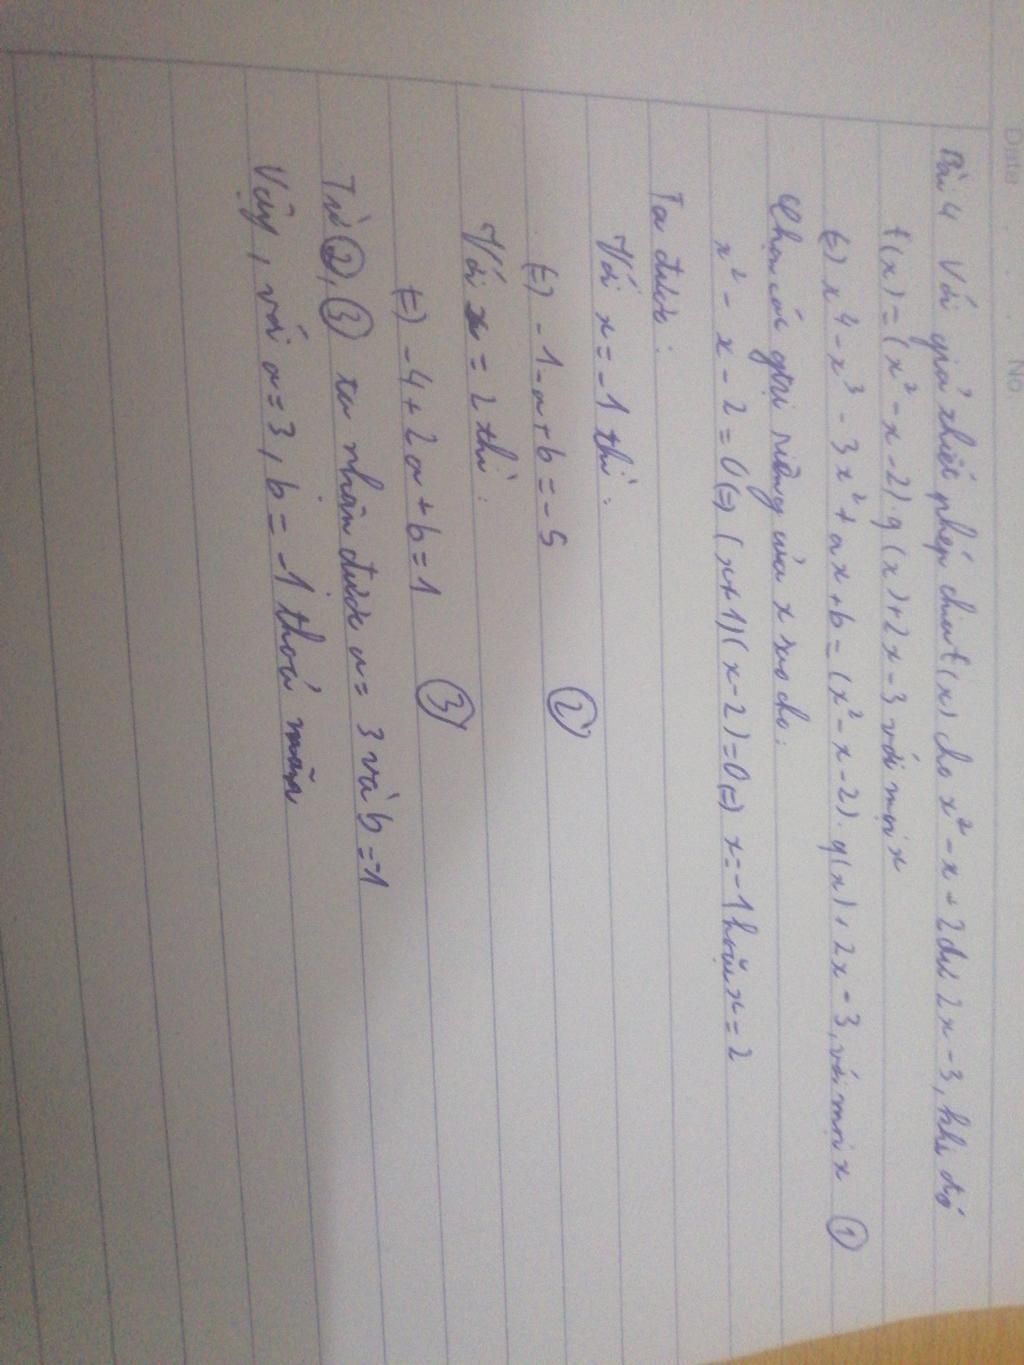 Date
No.
Bài 4 Với giả thiết phép chia f(x) cho x² - x - 2 dư 2x - 3, khi đó
f(x) = (x² - x - 2) . q(x) + 2x - 3 với mọi x
(=) x⁴ - x³ - 3x² + ax + b = (x² - x - 2) . q(x) + 2x - 3, với mọi x ①
Chọn các giá trị riêng của x sao cho:
x² - x - 2 = 0 (=) (x+1)(x-2) = 0 (=) x = -1 hoặc x = 2
Ta được:
Với x = -1 thì:
(=) -1 - a + b = -5 ②
Với x = 2 thì:
(=) -4 + 2a + b = 1 ③
Từ ②, ③ ta nhận được a = 3 và b = -1
Vậy, với a = 3, b = -1 thoả mãn